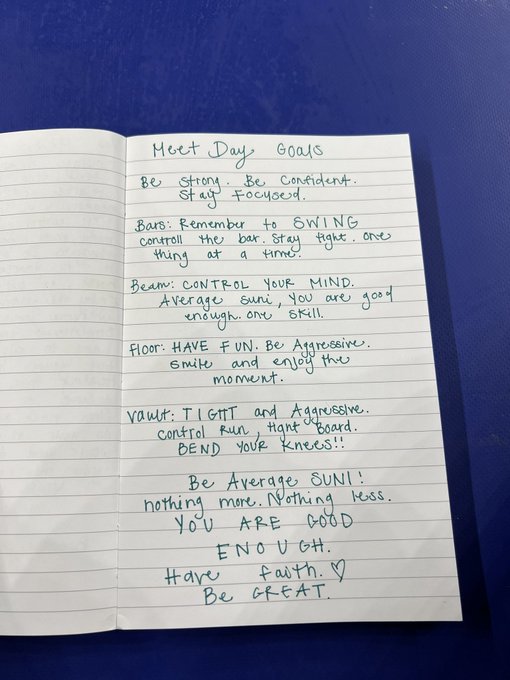 Meet Day Goals
Be strong. Be Confident.
Stay Focused.
Bars: Remember to SWING
controll the bar. Stay tight. one
thing at a time.
Beam: CONTROL YOUR MIND.
Average suni, you are good
enough. one skill.
Floor: HAVE FUN. Be Aggressive.
smile and enjoy the
moment.
Vault: TIGHT and Aggressive.
control Run, tight Board.
BEND YOUR Knees!!
Be Average SUNI!
nothing more. Nothing less.
YOU ARE GOOD
ENOUGH.
Have faith. ♡
Be GREAT.